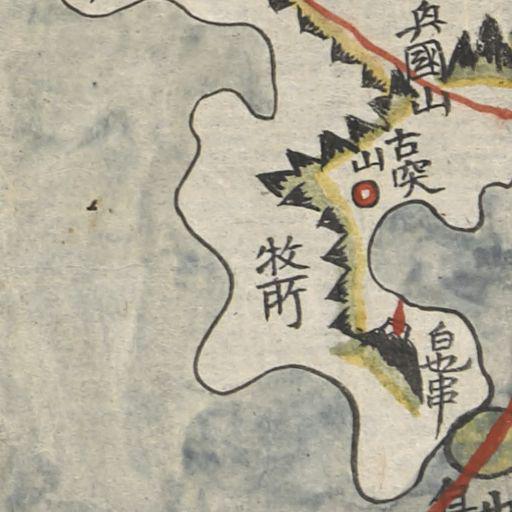 兵國山
古突
山
牧所
白也串